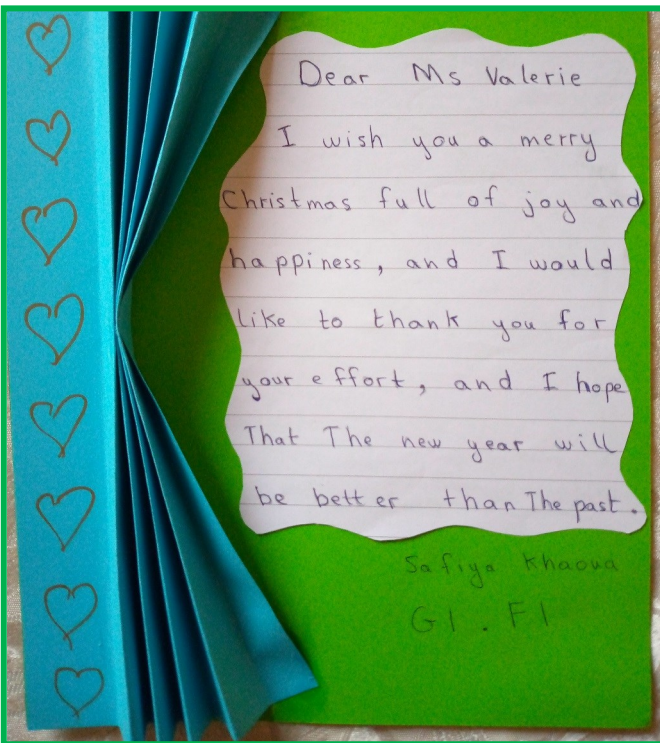 Dear Ms Valerie
I wish you a merry
Christmas full of joy and
happiness, and I would
like to thank you for
your effort, and I hope
That The new year will
be better than The past.
Safiya Khaoua
G1. F1